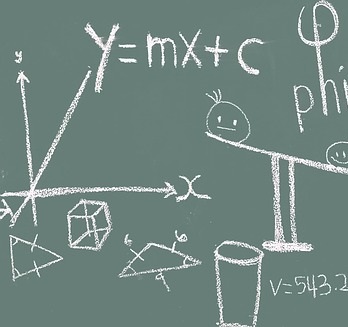 y=mx+c
φ
phi
y
x
6 6
9
V=543.2